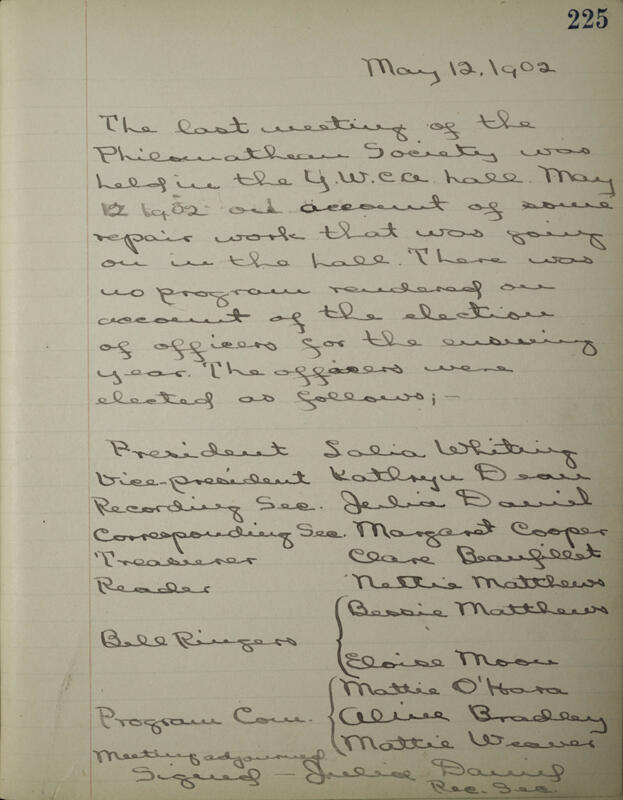 225
May 12, 1902
The last meeting of the
Philomathean Society was
held in the Y.W.C.A. hall. May
12 1902 on account of some
repair work that was going
on in the hall. There was
no program rendered on
account of the election
of officers for the ensuing
year. The officers were
elected as follows; –
President Salia Whiting
Vice-president Kathryn Dean
Recording Sec. Julia Daniel
Corresponding Sec. Margaret Cooper
Treasurer Clare Beaufillet
Reader Nettie Matthews
Bessie Matthews
Bell Ringers
Eloise Moon
Mattie O'Hara
Program Com. Aline Bradley
Mattie Weaver
Meeting adjourned
Signed – Julia Daniel
Rec. Sec.